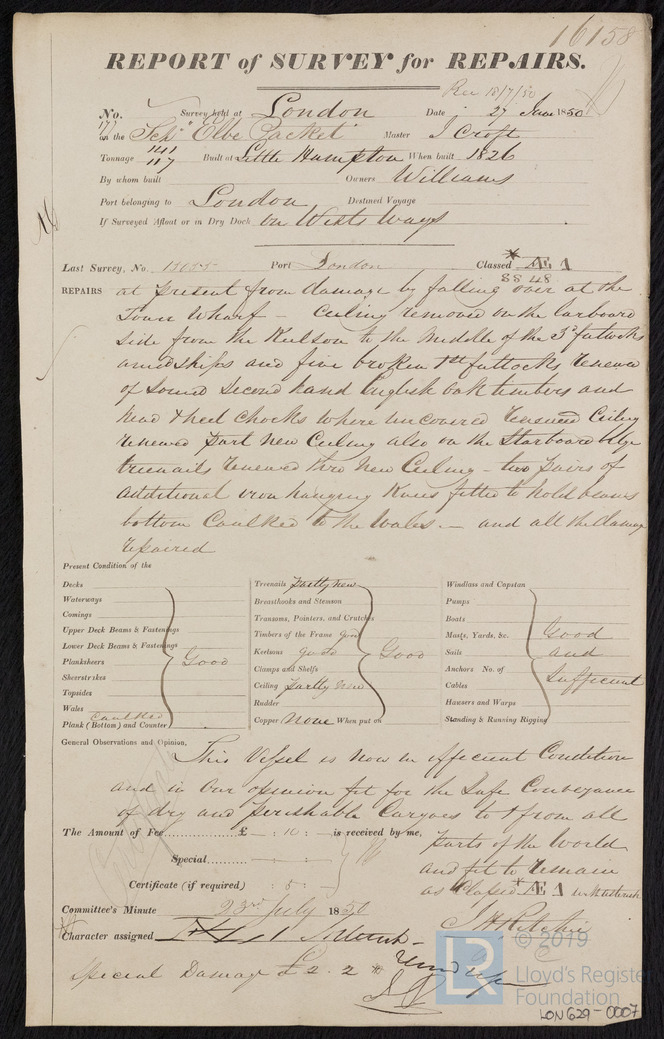 16158
REPORT of SURVEY for REPAIRS.
Rec 18/7/50
No. 177 Survey held at London Date 27 June 1850
on the Schr "Elbe Packet" Master J Croft
Tonnage 141/117 Built at Little Hampton When built 1826
By whom built Owners Williams
Port belonging to London Destined Voyage
If Surveyed Afloat or in Dry Dock on Wests Ways
Last Survey, No. 15055 Port London Classed * Æ A
88 48
REPAIRS at present from damage by falling over at the
Town Wharf – Ceiling removed on the larboard
side from the Keelson to the middle of the 3d futtocks
amidships and five broken 1st futtocks renewed
of sound second hand English oak timbers and
head & heel chocks where uncovered renewed Ceiling
renewed part new Ceiling also on the Starboard bilge
treenails renewed thro new Ceiling – two pairs of
additional iron hanging Knees fitted to hold beams
bottom Caulked to the Wales. – and all the damage
repaired
Present Condition of the
Decks
Waterways
Comings
Upper Deck Beams & Fastenings
Lower Deck Beams & Fastenings
Planksheers
Sheerstrakes
Topsides
Wales
Plank (Bottom) and Counter Caulked
Good
Treenails partly new
Breasthooks and Stemson
Transoms, Pointers, and Crutches
Timbers of the Frame good
Keelsons good
Clamps and Shelfs
Ceiling partly new
Rudder
Copper None When put on
Good
Windlass and Capstan
Pumps
Boats
Masts, Yards, &c.
Sails
Anchors No. of
Cables
Hawsers and Warps
Standing & Running Rigging
Good
and
Sufficient
General Observations and Opinion, This Vessel is now in efficient Condition
and in our opinion fit for the Safe Conveyance
of dry and perishable Cargoes to & from all
parts of the World
and fit to remain
as Classed * Æ A
The Amount of Fee............£ – : 10 : – is received by me,
Special..........
Certificate (if required) : 5 :
Committee's Minute 23rd July 1850
Character assigned
Special Damage £2.2
© 2019
LR
Lloyd's Register
Foundation
LON629-0007